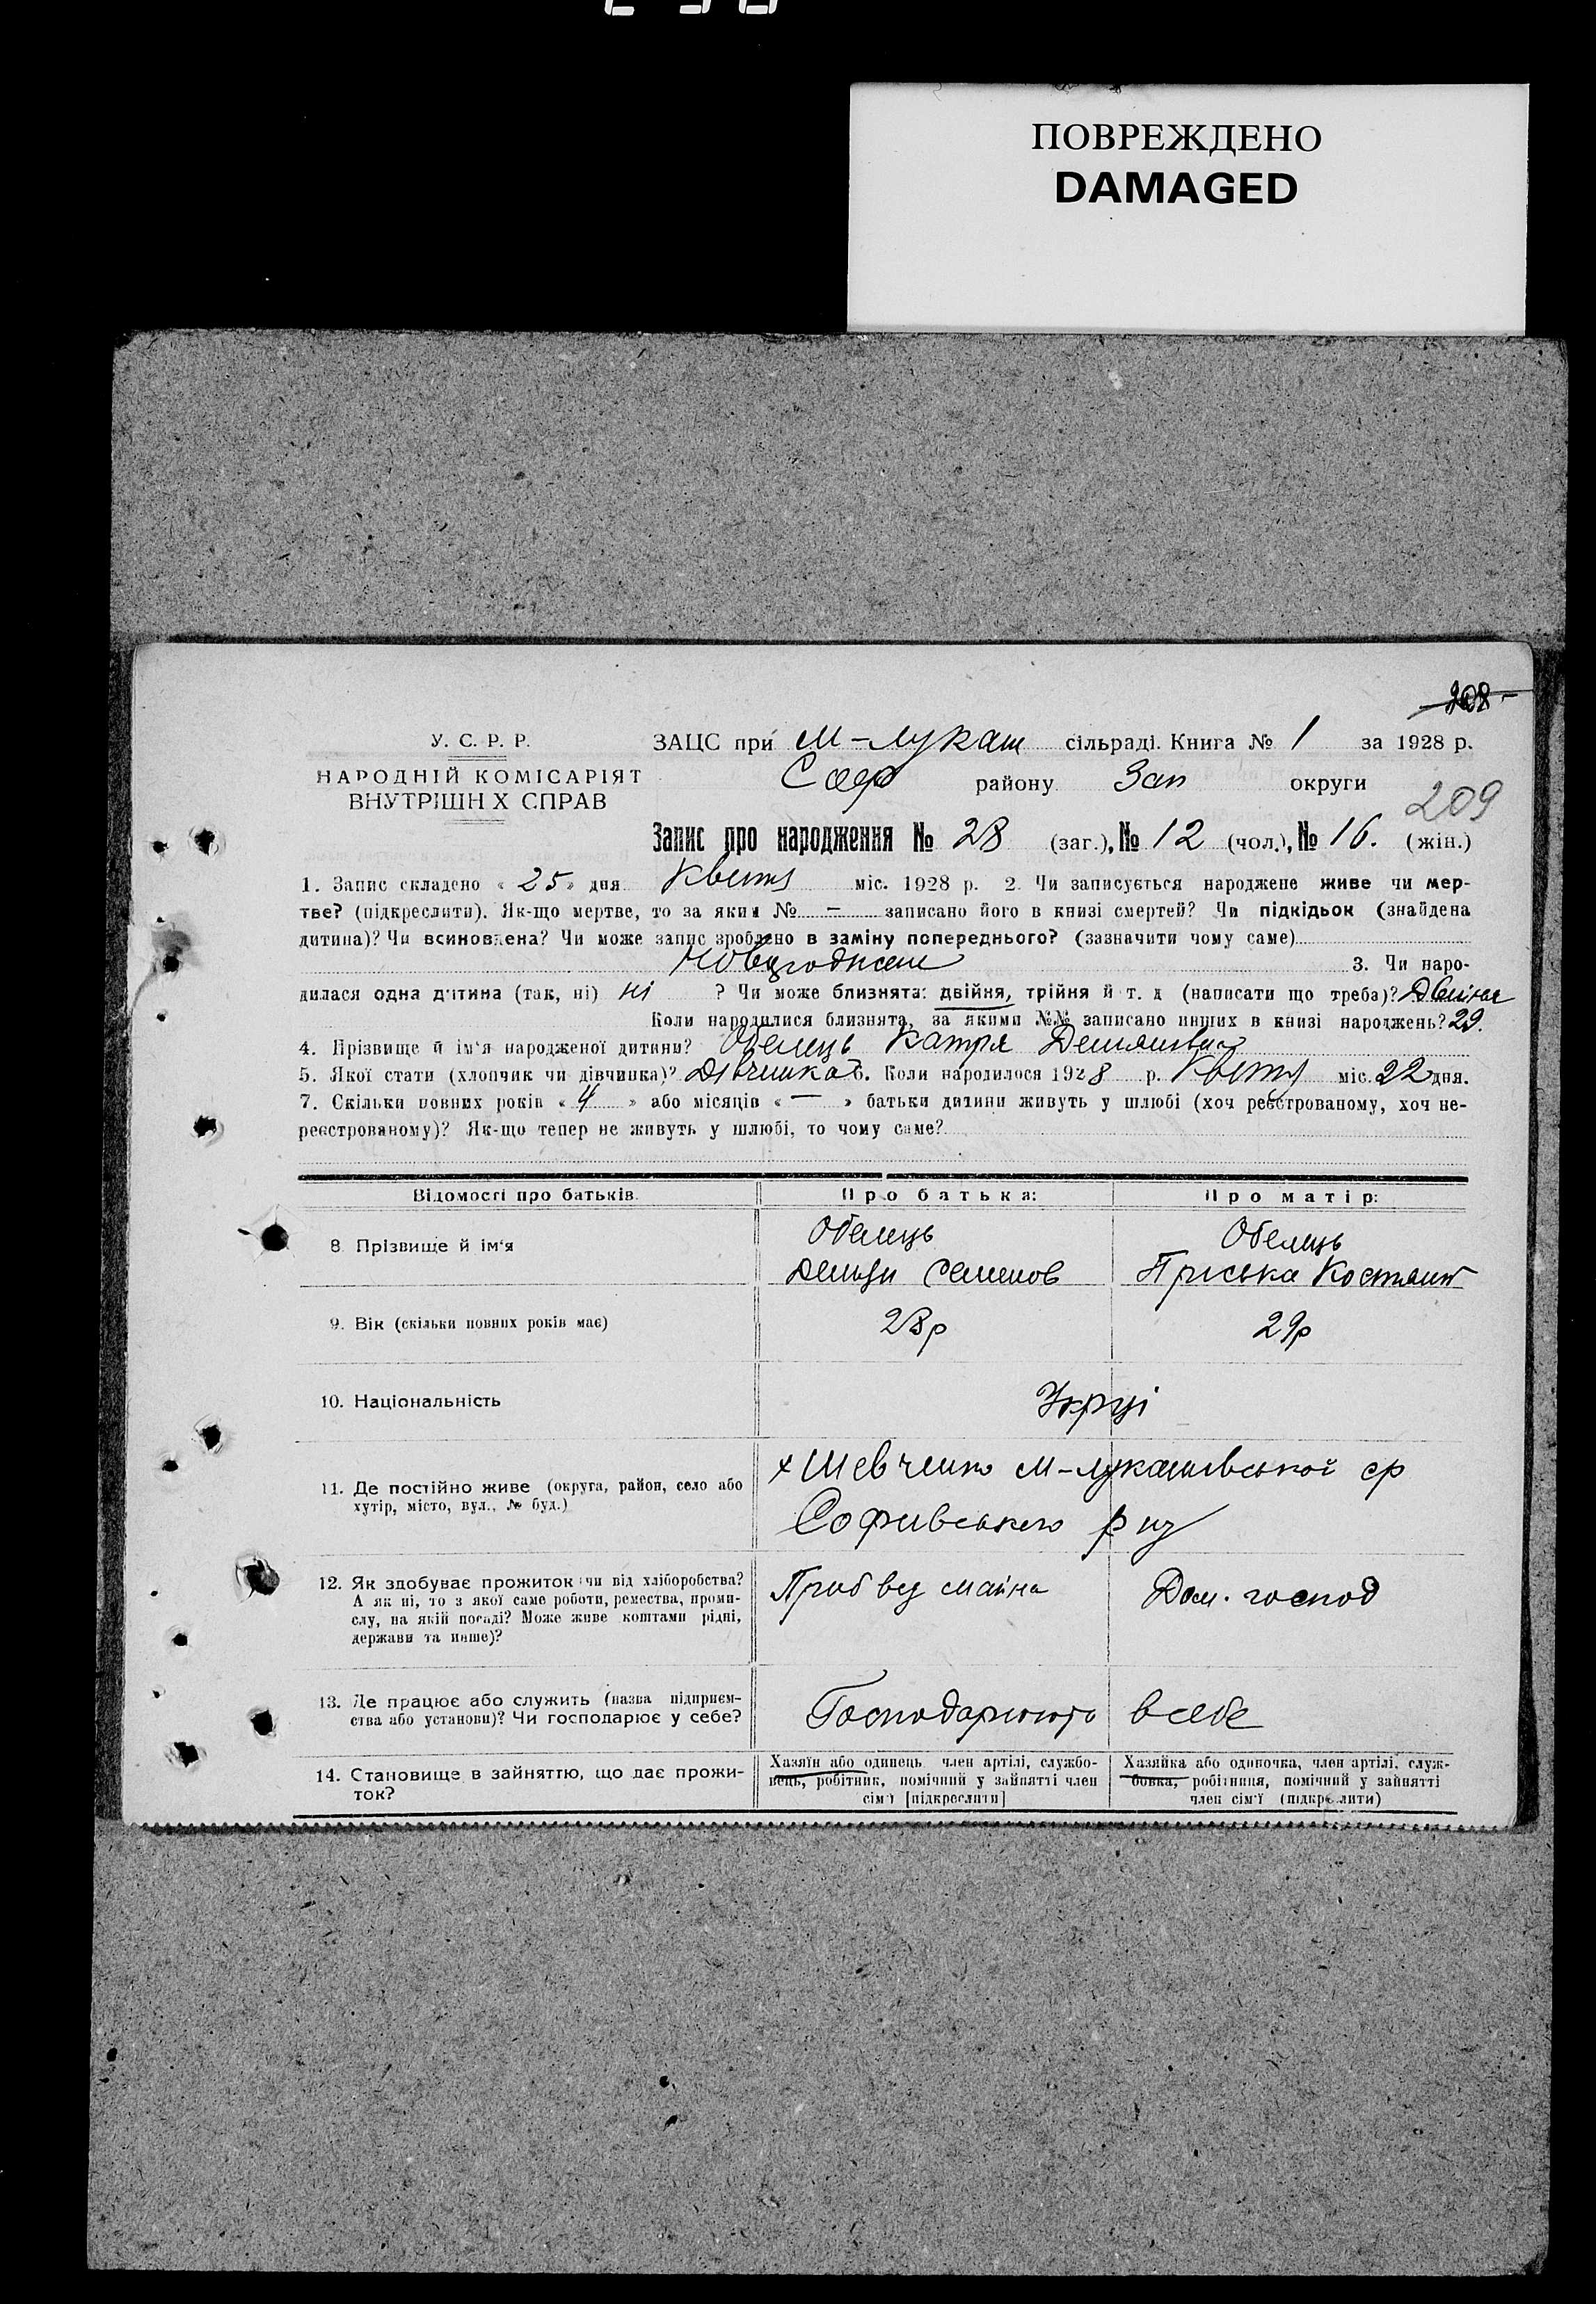 ПОВРЕЖДЕНО
DAMAGED
208
У. С. Р. Р.
НАРОДНІЙ КОМІСАРІЯТ
ВНУТРІШН Х СПРАВ
ЗАЦС при М-Лукаш сільраді. Книга № 1 за 1928 р.
Соф району Зап округи
209
Запис про народження № 28 (заг.), № 12 (чол.), № 16. (жін.)
1. Запис складено « 25 » дня Квітня міс. 1928 р. 2. Чи записується народжене живе чи мер-
тве? (підкреслити). Як-що мертве, то за яким № — записано його в книзі смертей? Чи підкідьок (знайдена
дитина)? Чи всиновлена? Чи може запис зроблено в заміну попереднього? (зазначити чому саме)
3. Чи наро-
дилася одна дитина (так, ні) ні ? Чи може близнята: двійня, трійня й т. д (написати що треба)? Двійня
Коли народилися близнята, за якими №№ записано инших в книзі народжень? 29.
4. Прізвище й ім'я народженої дитини? Обелець Катря
5. Якої стати (хлопчик чи дівчинка)? Дівчинка 6. Коли народилося 1928 р. Квітня міс. 22 дня.
7. Скільки повних років « 4 » або місяців « — » батьки дитини живуть у шлюбі (хоч реєстрованому, хоч не-
реєстрованому)? Як-що тепер не живуть у шлюбі, то чому саме?
Відомості про батьків. Про батька: Про матір:
8 Прізвище й ім'я
Обелець Обелець
Семенов Приська Костянт
9. Вік (скільки повних років має) 28р 29р
10. Національність Укрці
11. Де постійно живе (округа, район, село або
хутір, місто, вул., № буд.)
х Шевченко М-Лукашівської ср
Софиівського р
12. Як здобуває прожиток: чи від хліборобства?
А як ні, то з якої саме роботи, ремества, проми-
слу, на якій посаді? Може живе коштами рідні,
держави та инше)?
Дом. господ
13. Де працює або служить (назва підприєм-
ства або установи)? Чи господарює у себе?
Господарюють в себе
14. Становище в зайняттю, що дає прожи-
ток?
Хазяїн або одинець член артілі, службо-
вець, робітник, помічний у зайнятті член
сім'ї [підкреслити]
Хазяйка або одиночка, член артілі, служ-
бовка, робітниця, помічний у зайнятті
член сім'ї (підкреслити)